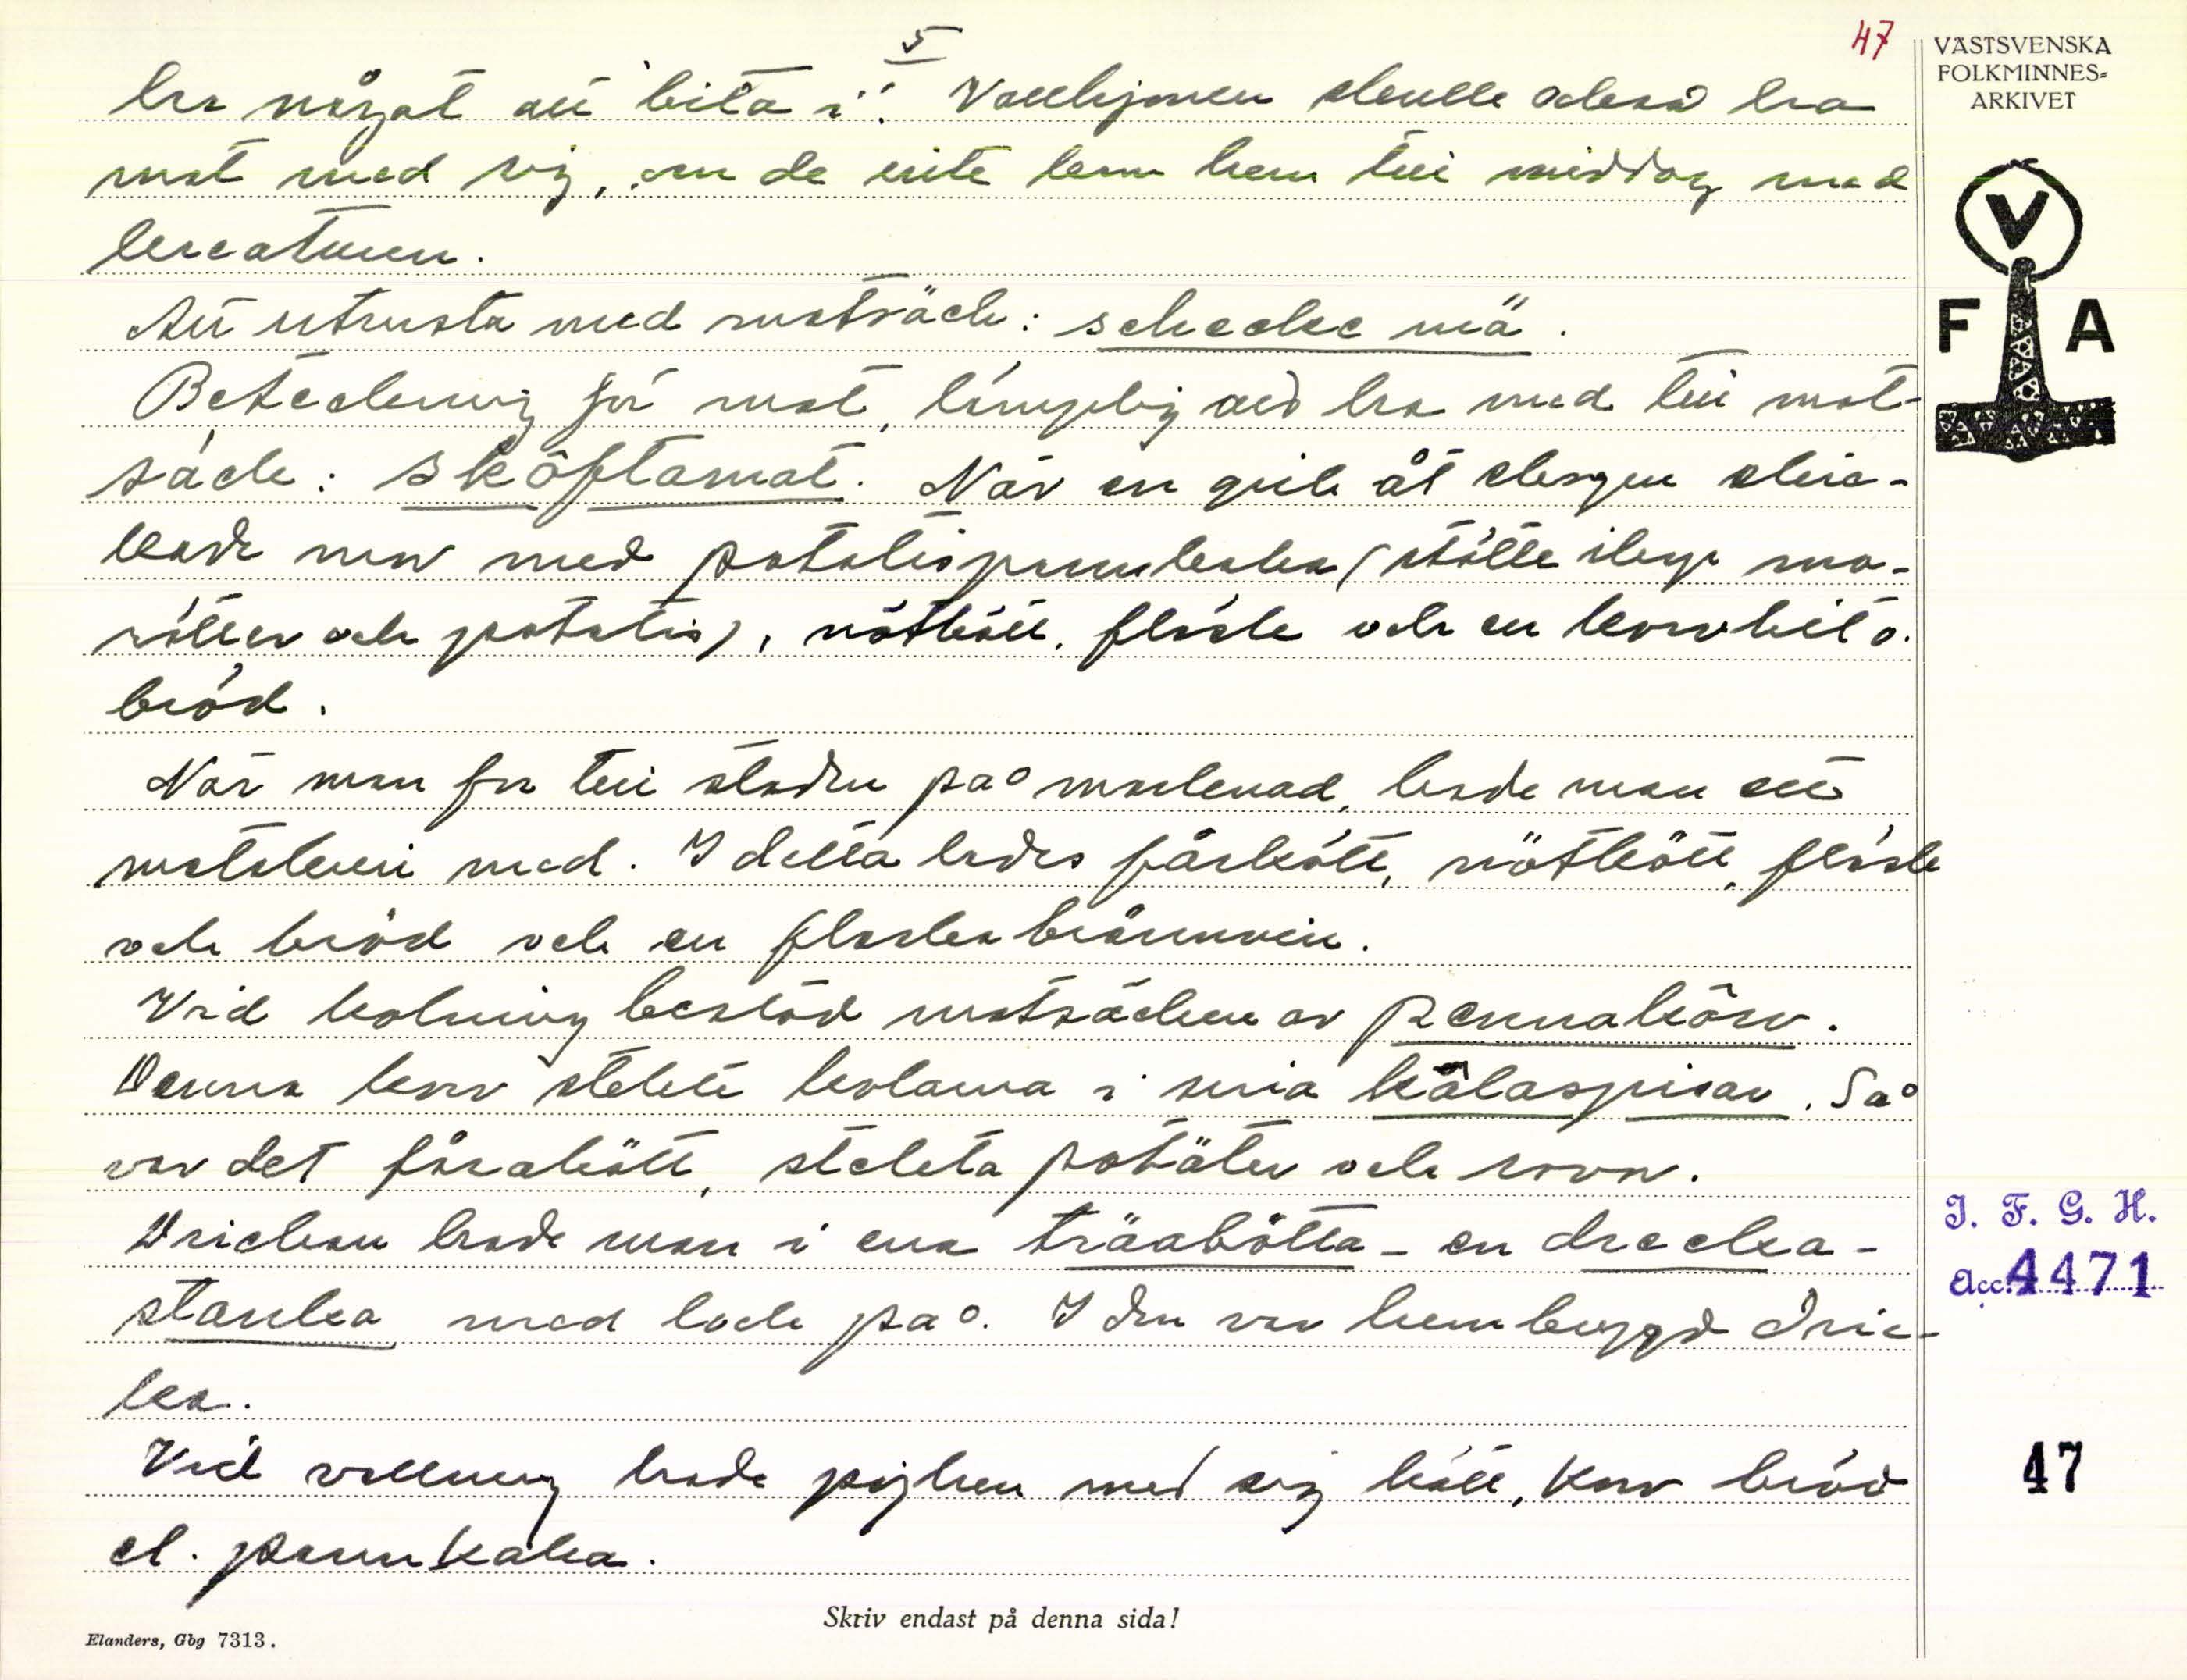 5
47
ha något att "bita i". Vallhjonen skulle också ha
mat med sig, om de inte kom hem till middag med
kreaturen.
Att utrusta med matsäck: schecke mä.
Beteckning för mat, lämplig att ha med till mat-
säck: sköftamat. När en gick åt skogen skic-
kade mor med potatispannkaka (stötte ihop mo-
rötter och potatis), nötkött, fläsk och en korvbit o.
bröd.
När man for till staden på marknad, hade man ett
matskrin med. I detta lades fårkött, nötkött, fläsk
och bröd och en flaska brännvin.
Vid kolning bestod matsäcken av pennakörv.
Denna korv stekte kolarna i sina kålaspisar. Så
var det fårakött, stekta potäter och rovor.
Drickan hade man i ena träabötta - en drecka-
stanka med lock på. I den var hembryggd dric-
ka.
Vid vallning hade pojken med sig kött, korv bröd
el. pannkaka.
Skriv endast på denna sida!
Elanders, Gbg 7313.
VÄSTSVENSKA
FOLKMINNES-
ARKIVET
V
F A
I. F. G. H.
Acc. 4471
47